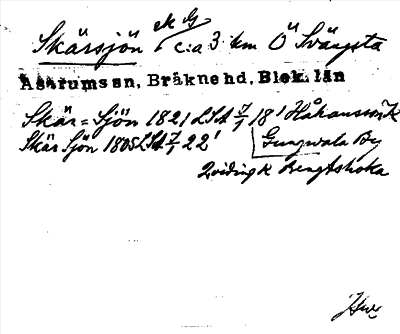 Skärsjön ek G c:a 3 km Ö Svängsta
Asarums sn, Bräkne hd, Blek. län
Skär=Sjön 1821 LSA 7/1 18' Håkansson K
Skär Sjön 1805 LSA 7/1 22' Gungvala By
Bengtshoka